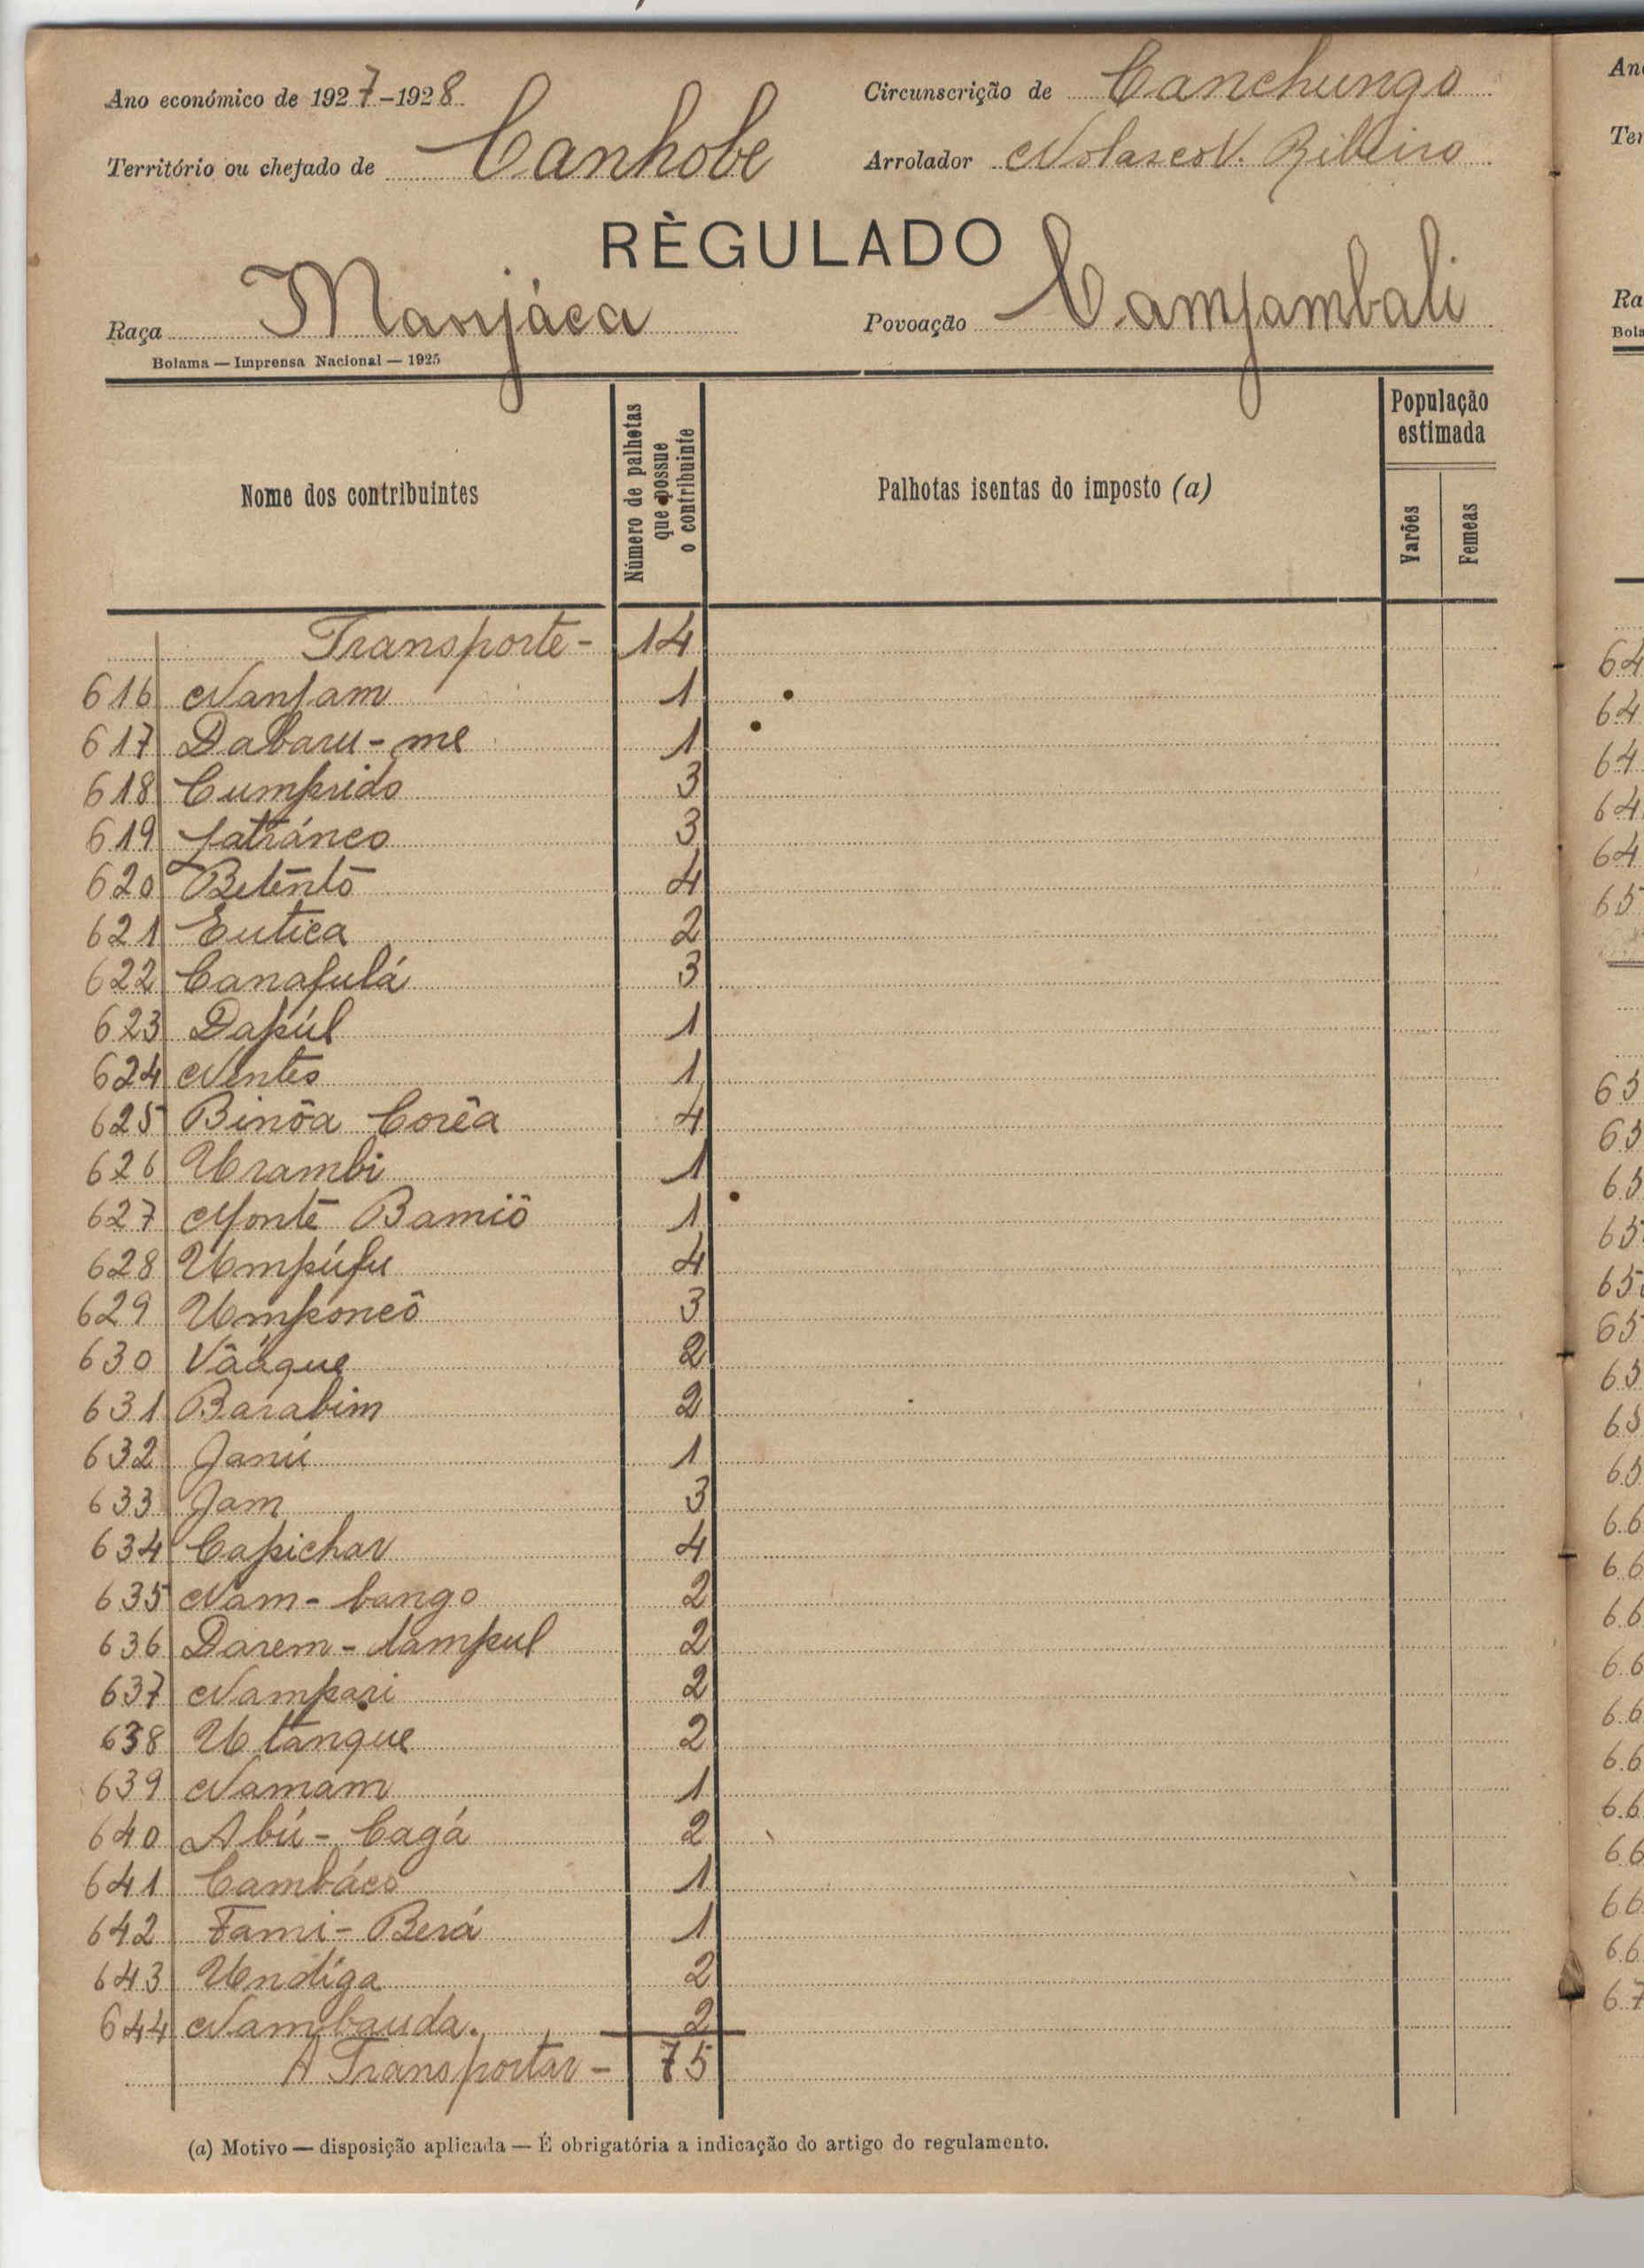 Ano económico de 1927-1928
Circunscrição de Canchungo
Território ou chefado de Canhobe
Arrolador Nolasco V. Ribeiro
RÈGULADO
Raça Manjáca
Povoação Camjambali
Bolama — Imprensa Nacional — 1925
Nome dos contribuintes
Número de palhotas que possue o contribuinte
Palhotas isentas do imposto (a)
População estimada
Varões
Femeas
Transporte - 14
616 Nanjam 1
617 Dabaru-me 1
618 Cumprido 3
619 Jatránco 3
620 Beténtó 4
621 Eutica 2
622 Canafulá 3
623 Dapúl 1
624 Nentes 1
625 Binôa Corêa 4
626 Urambi 1
627 Monte Bamiô 1
628 Umpúfu 4
629 Umponcô 3
630 Vâáque 2
631 Barabim 2
632 Janú 1
633 Jam 3
634 Capichar 4
635 Nam-bango 2
636 Darem-dampul 2
637 Nampari 2
638 Utanque 2
639 Namám 1
640 Abú-Cagá 2
641 Cambáco 1
642 Fami-Berá 1
643 Undiga 2
644 Nambauda. 2
A Transportar - 75
(a) Motivo — disposição aplicada — É obrigatória a indicação do artigo do regulamento.